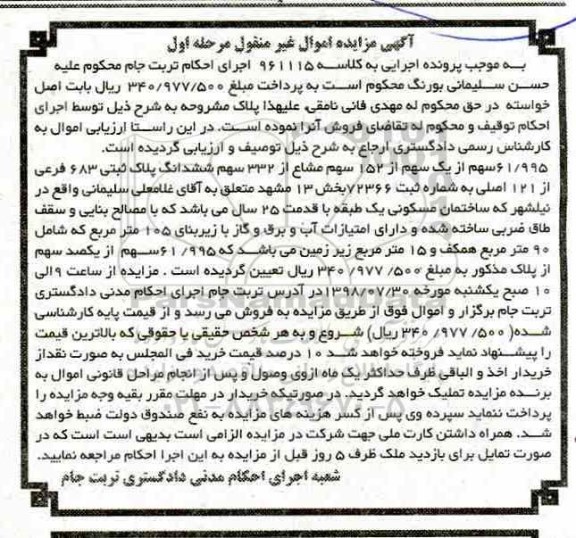 آگهی مزایده اموال غیر منقول مرحله اول
به موجب پرونده اجرایی به کلاسه ۹۶۱۱۱۵ اجرای احکام تربت جام محکوم علیه
حسن سلیمانی بورنگ محکوم است به پرداخت مبلغ ۳۴۰/۹۷۷/۵۰۰ ریال بابت اصل
خواسته در حق محکوم له مهدی فانی نامقی، علیهذا پلاک مشروحه به شرح ذیل توسط اجرای
احکام توقیف و محکوم له تقاضای فروش آنرا نموده است. در این راستا ارزیابی اموال به
کارشناس رسمی دادگستری ارجاع به شرح ذیل توصیف و ارزیابی گردیده است.
۶۱/۹۹۵سهم از یک سهم از ۱۵۲ سهم مشاع از ۳۳۲ سهم ششدانگ پلاک ثبتی ۶۸۳ فرعی
از ۱۲۱ اصلی به شماره ثبت ۷۲۳۶۶بخش ۱۳ مشهد متعلق به آقای غلامعلی سلیمانی واقع در
نیلشهر که ساختمان مسکونی یک طبقه با قدمت ۲۵ سال می باشد که با مصالح بنایی و سقف
طاق ضربی ساخته شده و دارای امتیازات آب و برق و گاز با زیربنای ۱۰۵ متر مربع که شامل
۹۰ متر مربع همکف و ۱۵ متر مربع زیر زمین می باشد که ۶۱/۹۹۵سهم از یکصد سهم
از پلاک مذکور به مبلغ ۳۴۰/۹۷۷/۵۰۰ ریال تعیین گردیده است . مزایده از ساعت ۹ الی
۱۰ صبح یکشنبه مورخه ۱۳۹۸/۰۷/۳۰در آدرس تربت جام اجرای احکام مدنی دادگستری
تربت جام برگزار و اموال فوق از طریق مزایده به فروش می رسد و از قیمت پایه کارشناسی
شده( ۳۴۰/۹۷۷/۵۰۰ ریال) شروع و به هر شخص حقیقی یا حقوقی که بالاترین قیمت
را پیشنهاد نماید فروخته خواهد شد ۱۰ درصد قیمت خرید فی المجلس به صورت نقد از
خریدار اخذ و الباقی ظرف حداکثر یک ماه ازوی وصول و پس از انجام مراحل قانونی اموال به
برنده مزایده تملیک خواهد گردید. در صورتیکه خریدار در مهلت مقرر بقیه وجه مزایده را
پرداخت ننماید سپرده وی پس از کسر هزینه های مزایده به نفع صندوق دولت ضبط خواهد
شد. همراه داشتن کارت ملی جهت شرکت در مزایده الزامی است بدیهی است است که در
صورت تمایل برای بازدید ملک ظرف ۵ روز قبل از مزایده به این اجرا احکام مراجعه نمایید.
شعبه اجرای احکام مدنی دادگستری تربت جام